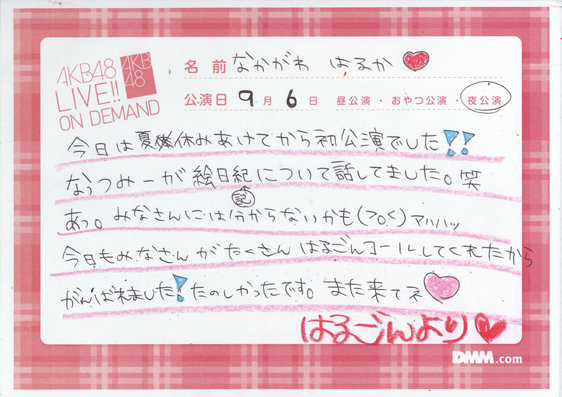 AKB48
LIVE!!
ON DEMAND
AKB
48
名前 なかがわ はるか
公演日 9月6日 昼公演・おやつ公演・夜公演
今日は夏休みあけてから初公演でした!!
なっつみーが絵日紀について話してました。笑
記
あっ。みなさんには分からないかも(>o<)アハハッ
今日もみなさんがたくさんはるごんコールしてくれたから
がんばれました!たのしかったです。また来てネ
はるごんより
DMM.com